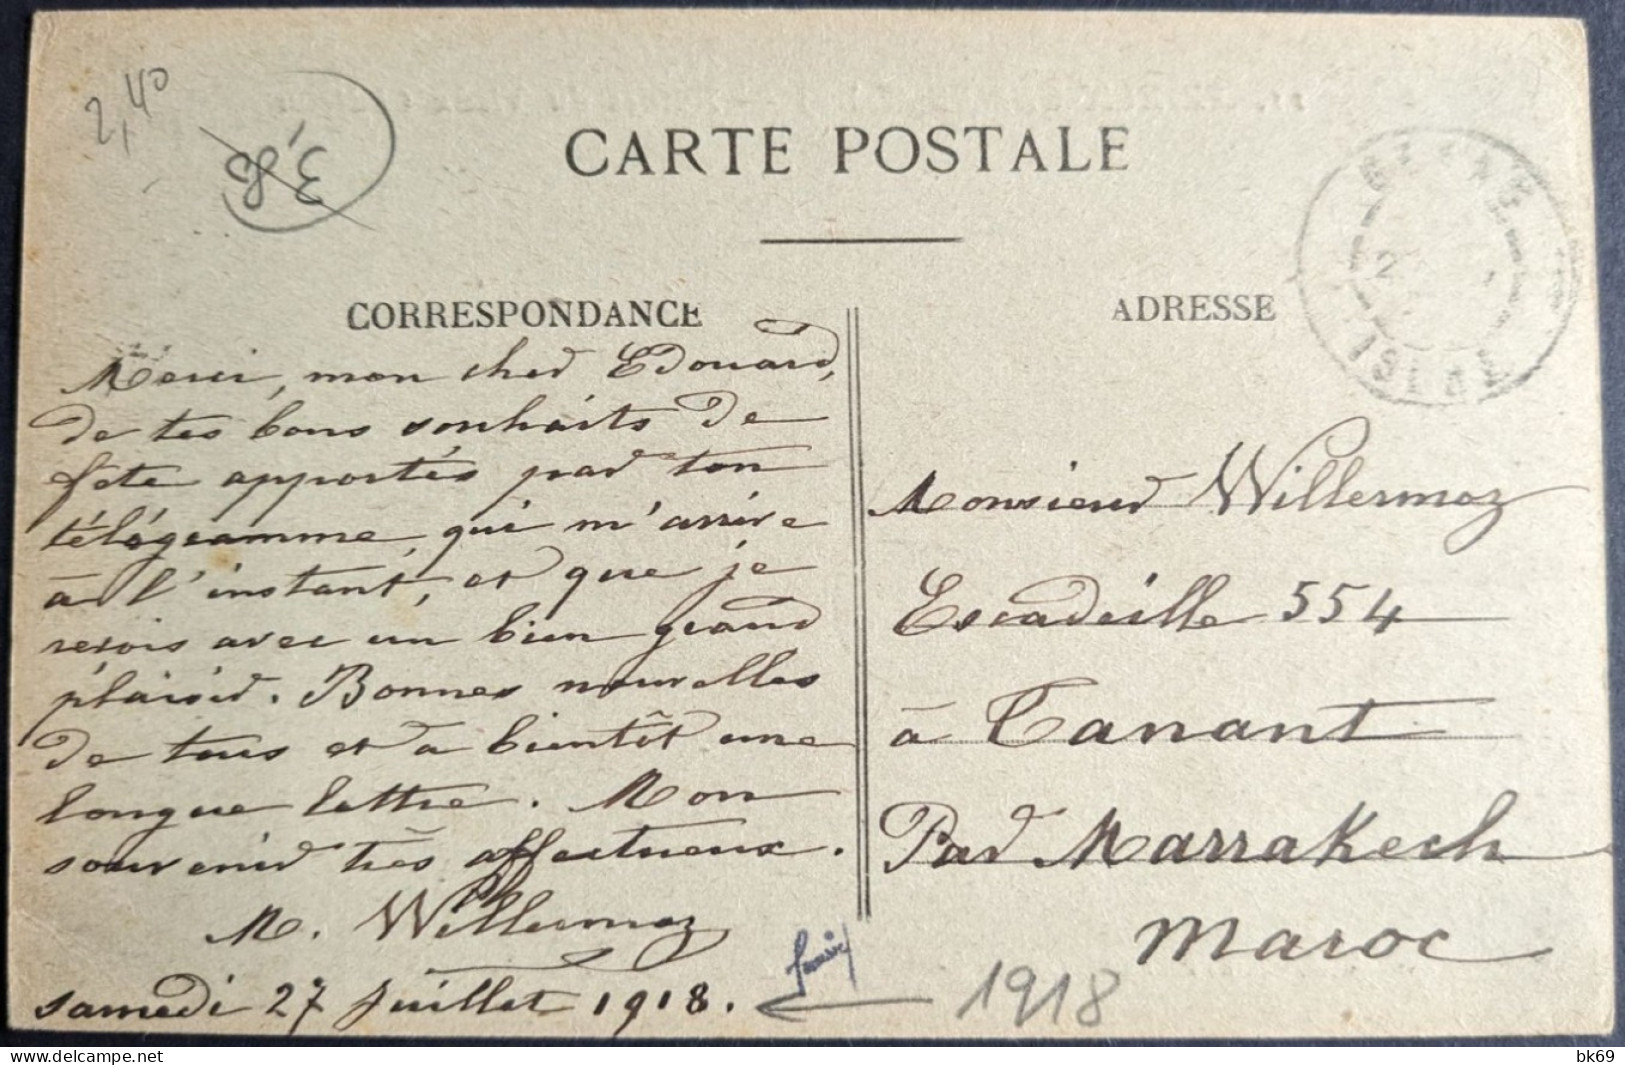 2,40
3,80
CARTE POSTALE
CORRESPONDANCE
Merci, mon cher Edouard,
de tes bons souhaits de
fête apportés par ton
télégramme, qui m'arrive
à l'instant, et que je
reçois avec un bien grand
plaisir. Bonnes nouvelles
de tous et à bientôt une
longue lettre. Mon
souvenir très affectueux.
M. Willermoz
samedi 27 Juillet 1918.
1918
ADRESSE
Monsieur Willermoz
Escadrille 554
à Tanant
Par Marrakech
Maroc
delcampe.net
bk69